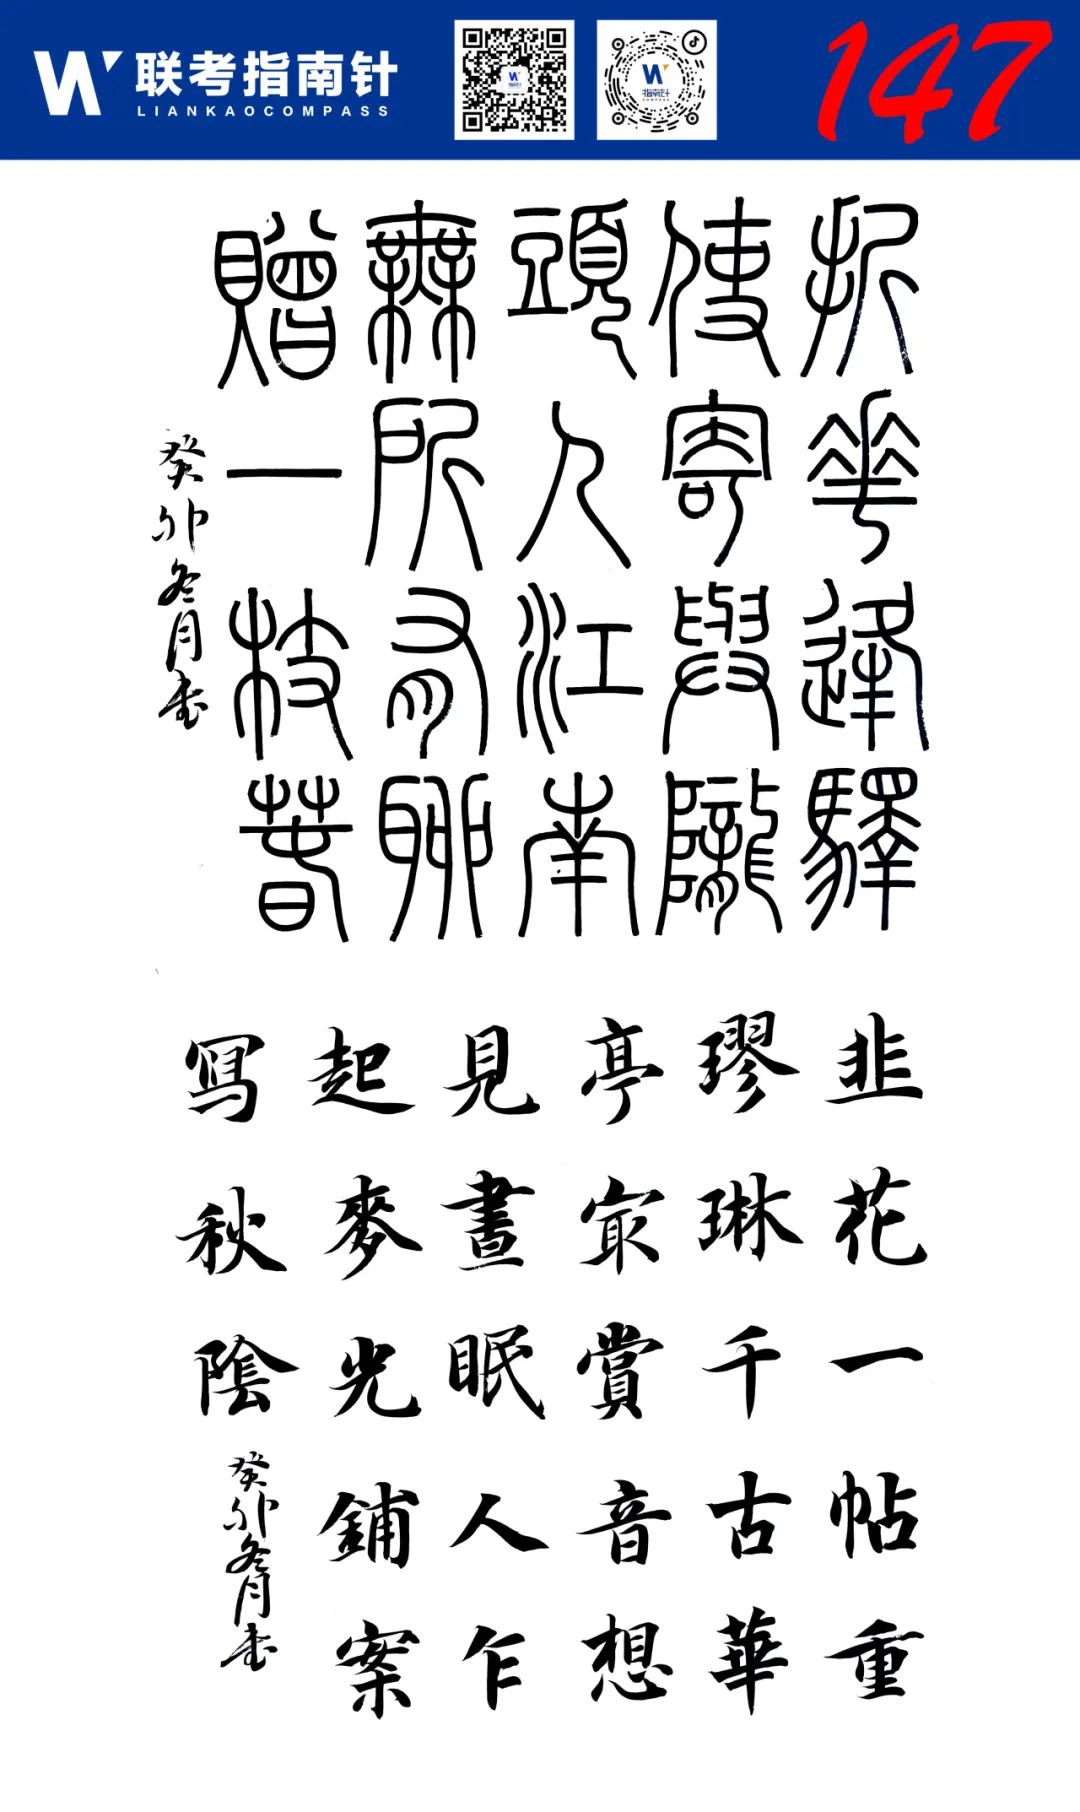 联考指南针
LIANKAOCOMPASS
指南针
147
折華逢驛
使寄與隴
頭人江南
無所有聊
贈一枝萅
癸卯冬月书
韭花一帖重
璆琳千古華
亭冣賞音想
見晝眠人乍
起麥光鋪案
寫秋陰
癸卯冬月书